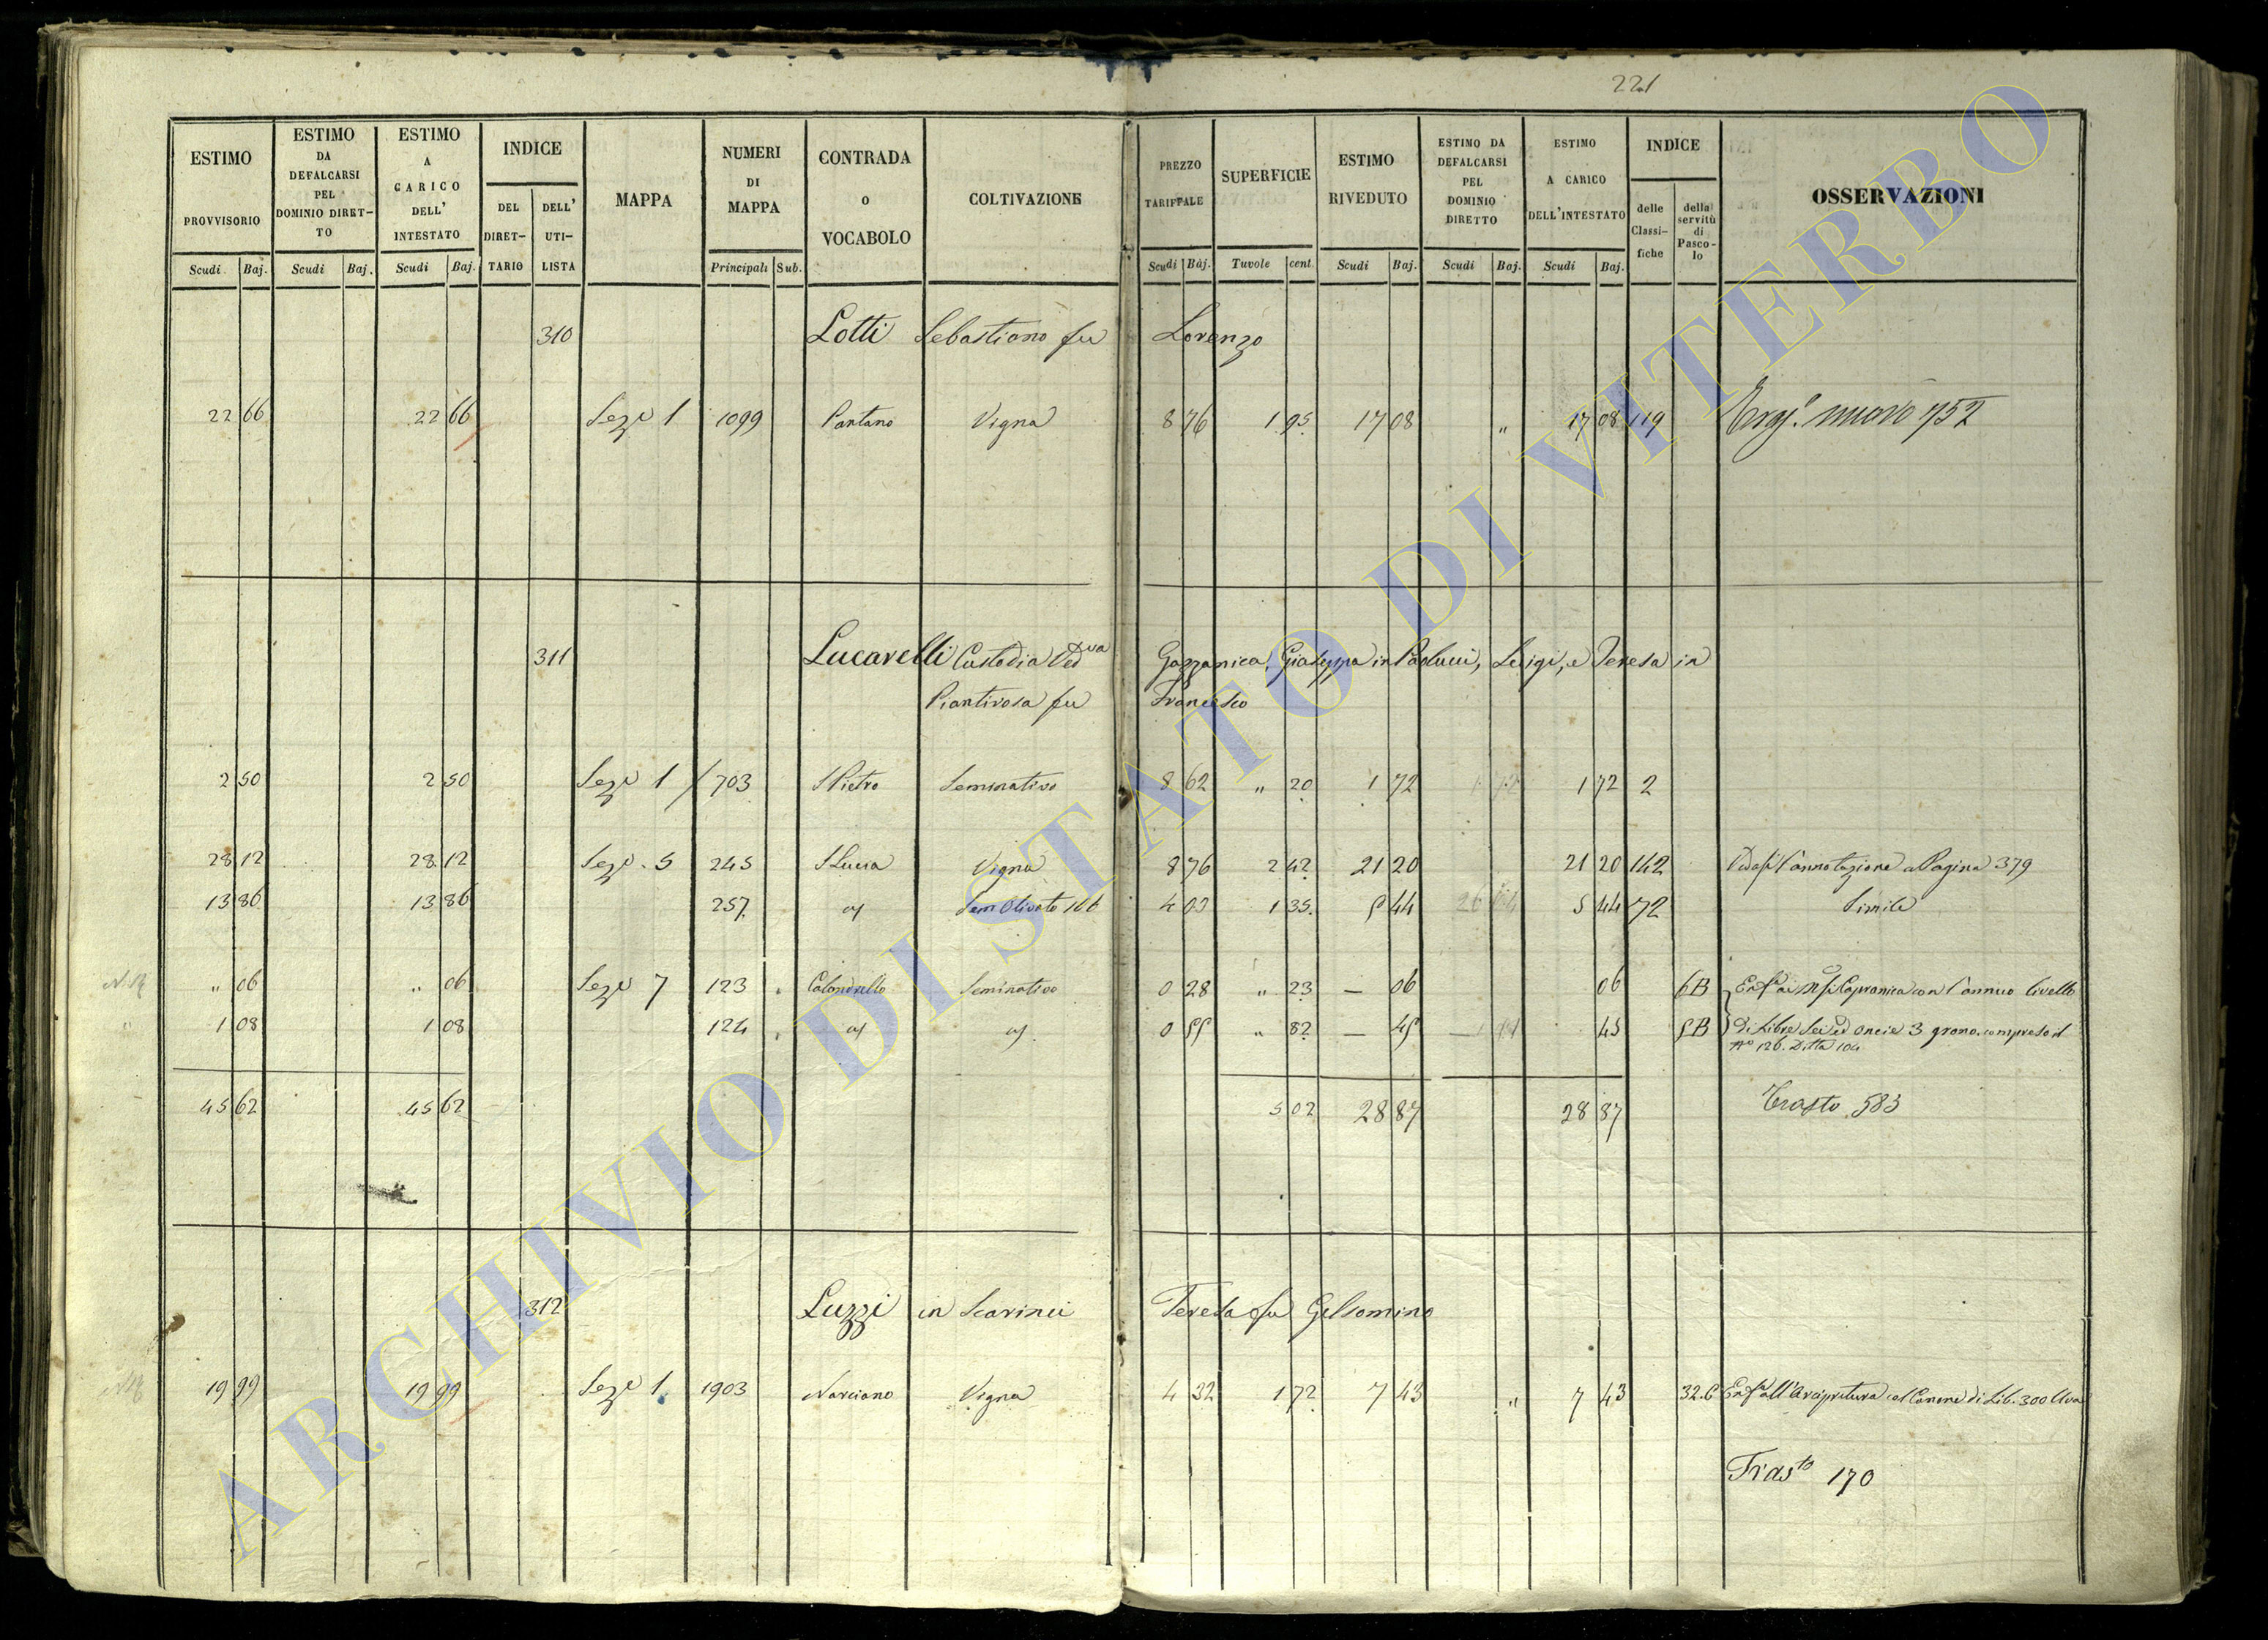 221
ESTIMO PROVVISORIO Scudi Baj. ESTIMO DA DEFALCARSI PEL DOMINIO DIRET-TO Scudi Baj. ESTIMO A CARICO DELL' INTESTATO Scudi Baj. INDICE DEL DIRET-TARIO DELL' UTI-LISTA MAPPA NUMERI DI MAPPA Principali Sub. CONTRADA O VOCABOLO COLTIVAZIONE PREZZO TARIFFALE Scudi Baj. SUPERFICIE Tavole cent. ESTIMO RIVEDUTO Scudi Baj. ESTIMO DA DEFALCARSI PEL DOMINIO DIRETTO Scudi Baj. ESTIMO A CARICO DELL'INTESTATO Scudi Baj. INDICE delle Classi-fiche della servitù di Pasco-lo OSSERVAZIONI
310 Lotti Sebastiano fu Lorenzo
22 66 22 66 Seze 1 1099 Pantano Vigna 8 76 1 95 17 08 " 17 08 119 nuovo 752
311 Lucarelli Custodia Ved.va Gazzanica, Giuseppa in Paolucci, Luigi, e Teresa in
Piantirosa fu Francesco
2 50 2 50 Seze 1 703 S Pietro Seminativo 8 62 " 20 1 72 1 72 1 72 2
28 12 28 12 Seze 5 245 S Lucia Vigna 8 76 2 42 21 20 21 20 142 l'annotazione a Pagina 379
13 86 13 86 257 Sem Olivato 4 03 1 35 5 44 5 44 72 Simile
" 06 " 06 Seze 7 123 Seminativo 0 28 " 23 — 06 06 6B Capranica con l'annuo livello
" 1 08 1 08 124 0 55 " 82 — 45 45 5B di Libre Sei ed oncie 3 grano. compreso il
N° 126. Ditta 104
45 62 45 62 5 02 28 87 28 87 Trasto 583
312 Luzzi in Scarinci Teresa fu Gelsomino
19 99 19 99 Seze 1 1903 Narciano Vigna 4 32 1 72 7 43 " 7 43 32.6 all'Arcipretura col Canone di Lib. 300 Uva
Tras.to 170
ARCHIVIO DI STATO DI VITERBO